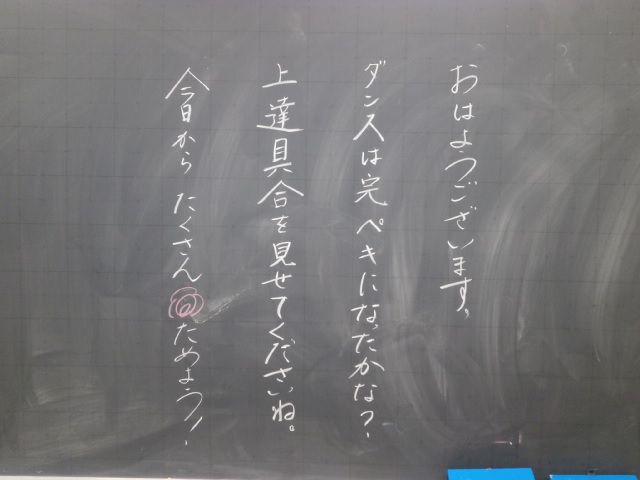 おはようございます。
ダンスは完ペキになったかな?
上達具合を見せてくださいね。
今日から たくさん◎ためよう!